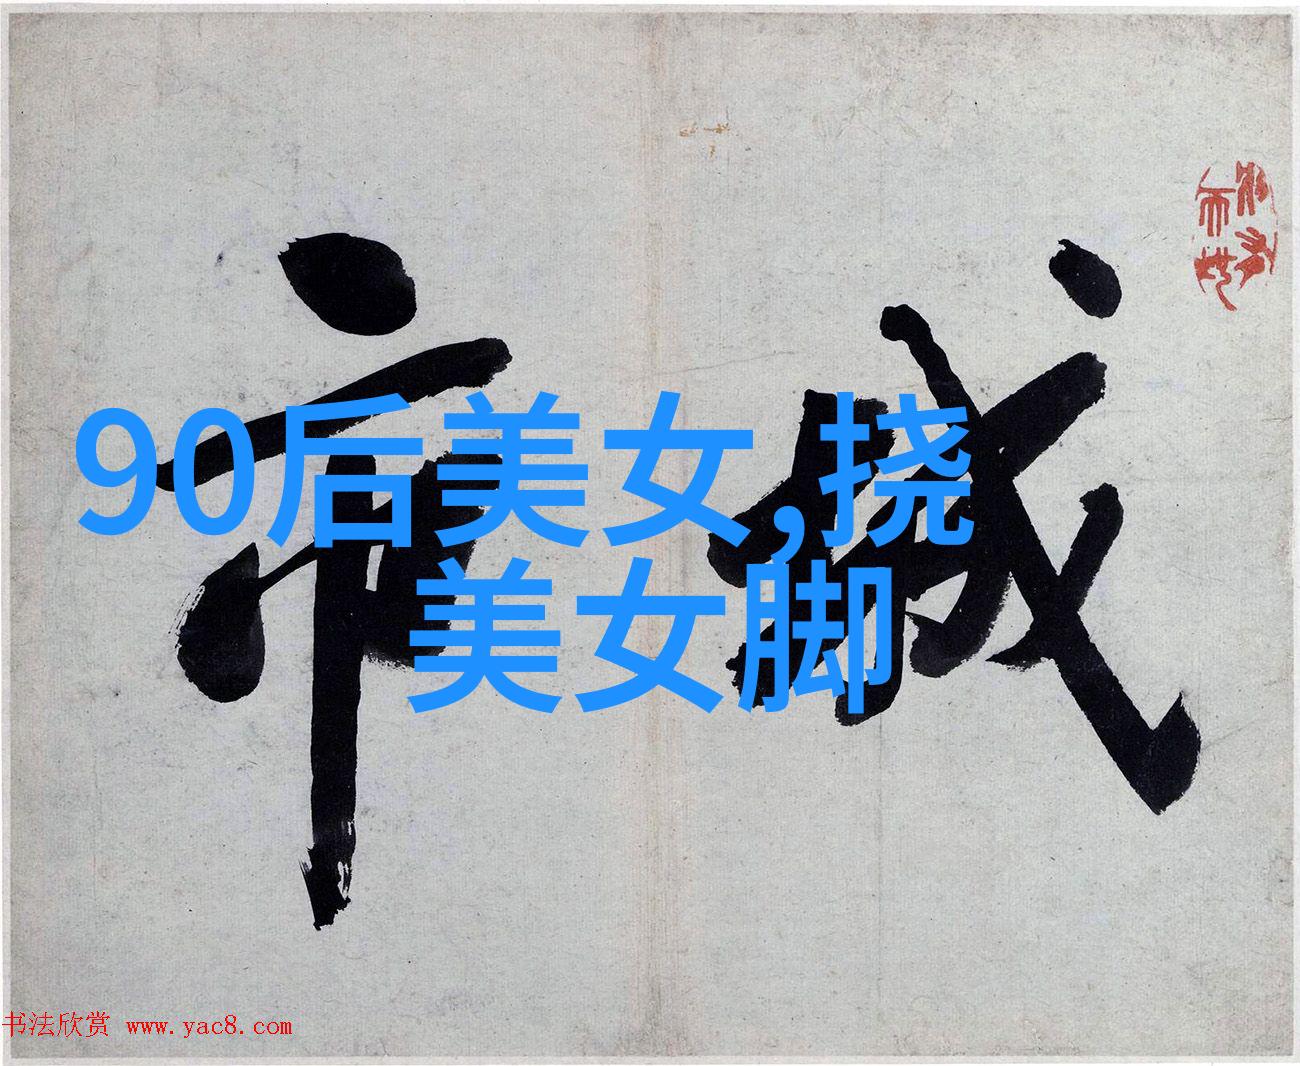 城市
90后美女,挠
美女脚
书法欣赏 www.yac8.com